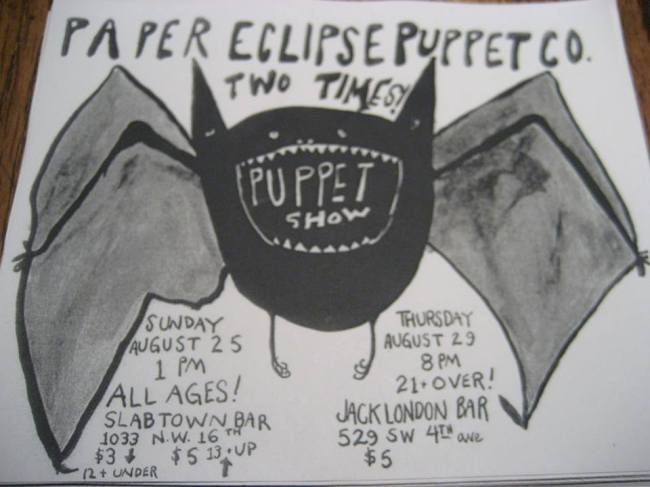 PAPER ECLIPSE PUPPET CO.
TWO TIMES!
PUPPET
SHOW
SUNDAY
AUGUST 25
1 PM
ALL AGES!
SLABTOWN BAR
1033 N.W. 16TH
$3 ↓ $5 13+UP ↑
12+ UNDER
THURSDAY
AUGUST 29
8 PM
21+OVER!
JACK LONDON BAR
529 SW 4TH ave
$5